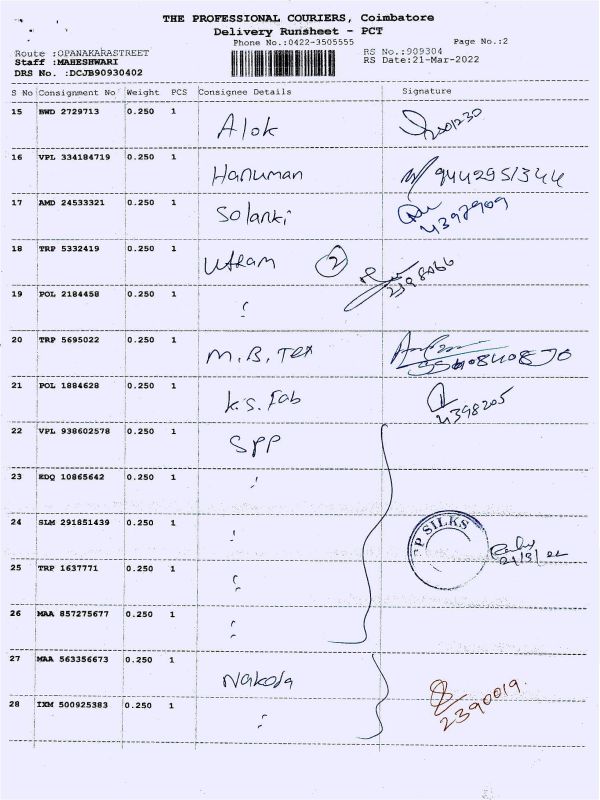 THE PROFESSIONAL COURIERS, Coimbatore
Delivery Runsheet - PCT
Phone No.:0422-3505555 Page No.:2
Route :OPANAKARASTREET RS No.:909304
Staff :MAHESHWARI RS Date:21-Mar-2022
DRS No. :DCJB90930402
S No Consignment No Weight PCS Consignee Details Signature
15 BWD 2729713 0.250 1 Alok
16 VPL 334184719 0.250 1 Hanuman 9442951344
17 AMD 24533321 0.250 1 Solanki 4397909
18 TRP 5332419 0.250 1 Uttam 2 2398066
19 POL 2184458 0.250 1 "
20 TRP 5695022 0.250 1 M.B. Tex
21 POL 1884628 0.250 1 K.S. Fab 4398205
22 VPL 938602578 0.250 1 SPP
23 EDQ 10865642 0.250 1 "
24 SLM 291851439 0.250 1 " SILKS 21/3/22
25 TRP 1637771 0.250 1 "
26 MAA 857275677 0.250 1 "
27 MAA 563356673 0.250 1 Nakoda 2390019
28 IXM 500925383 0.250 1 "